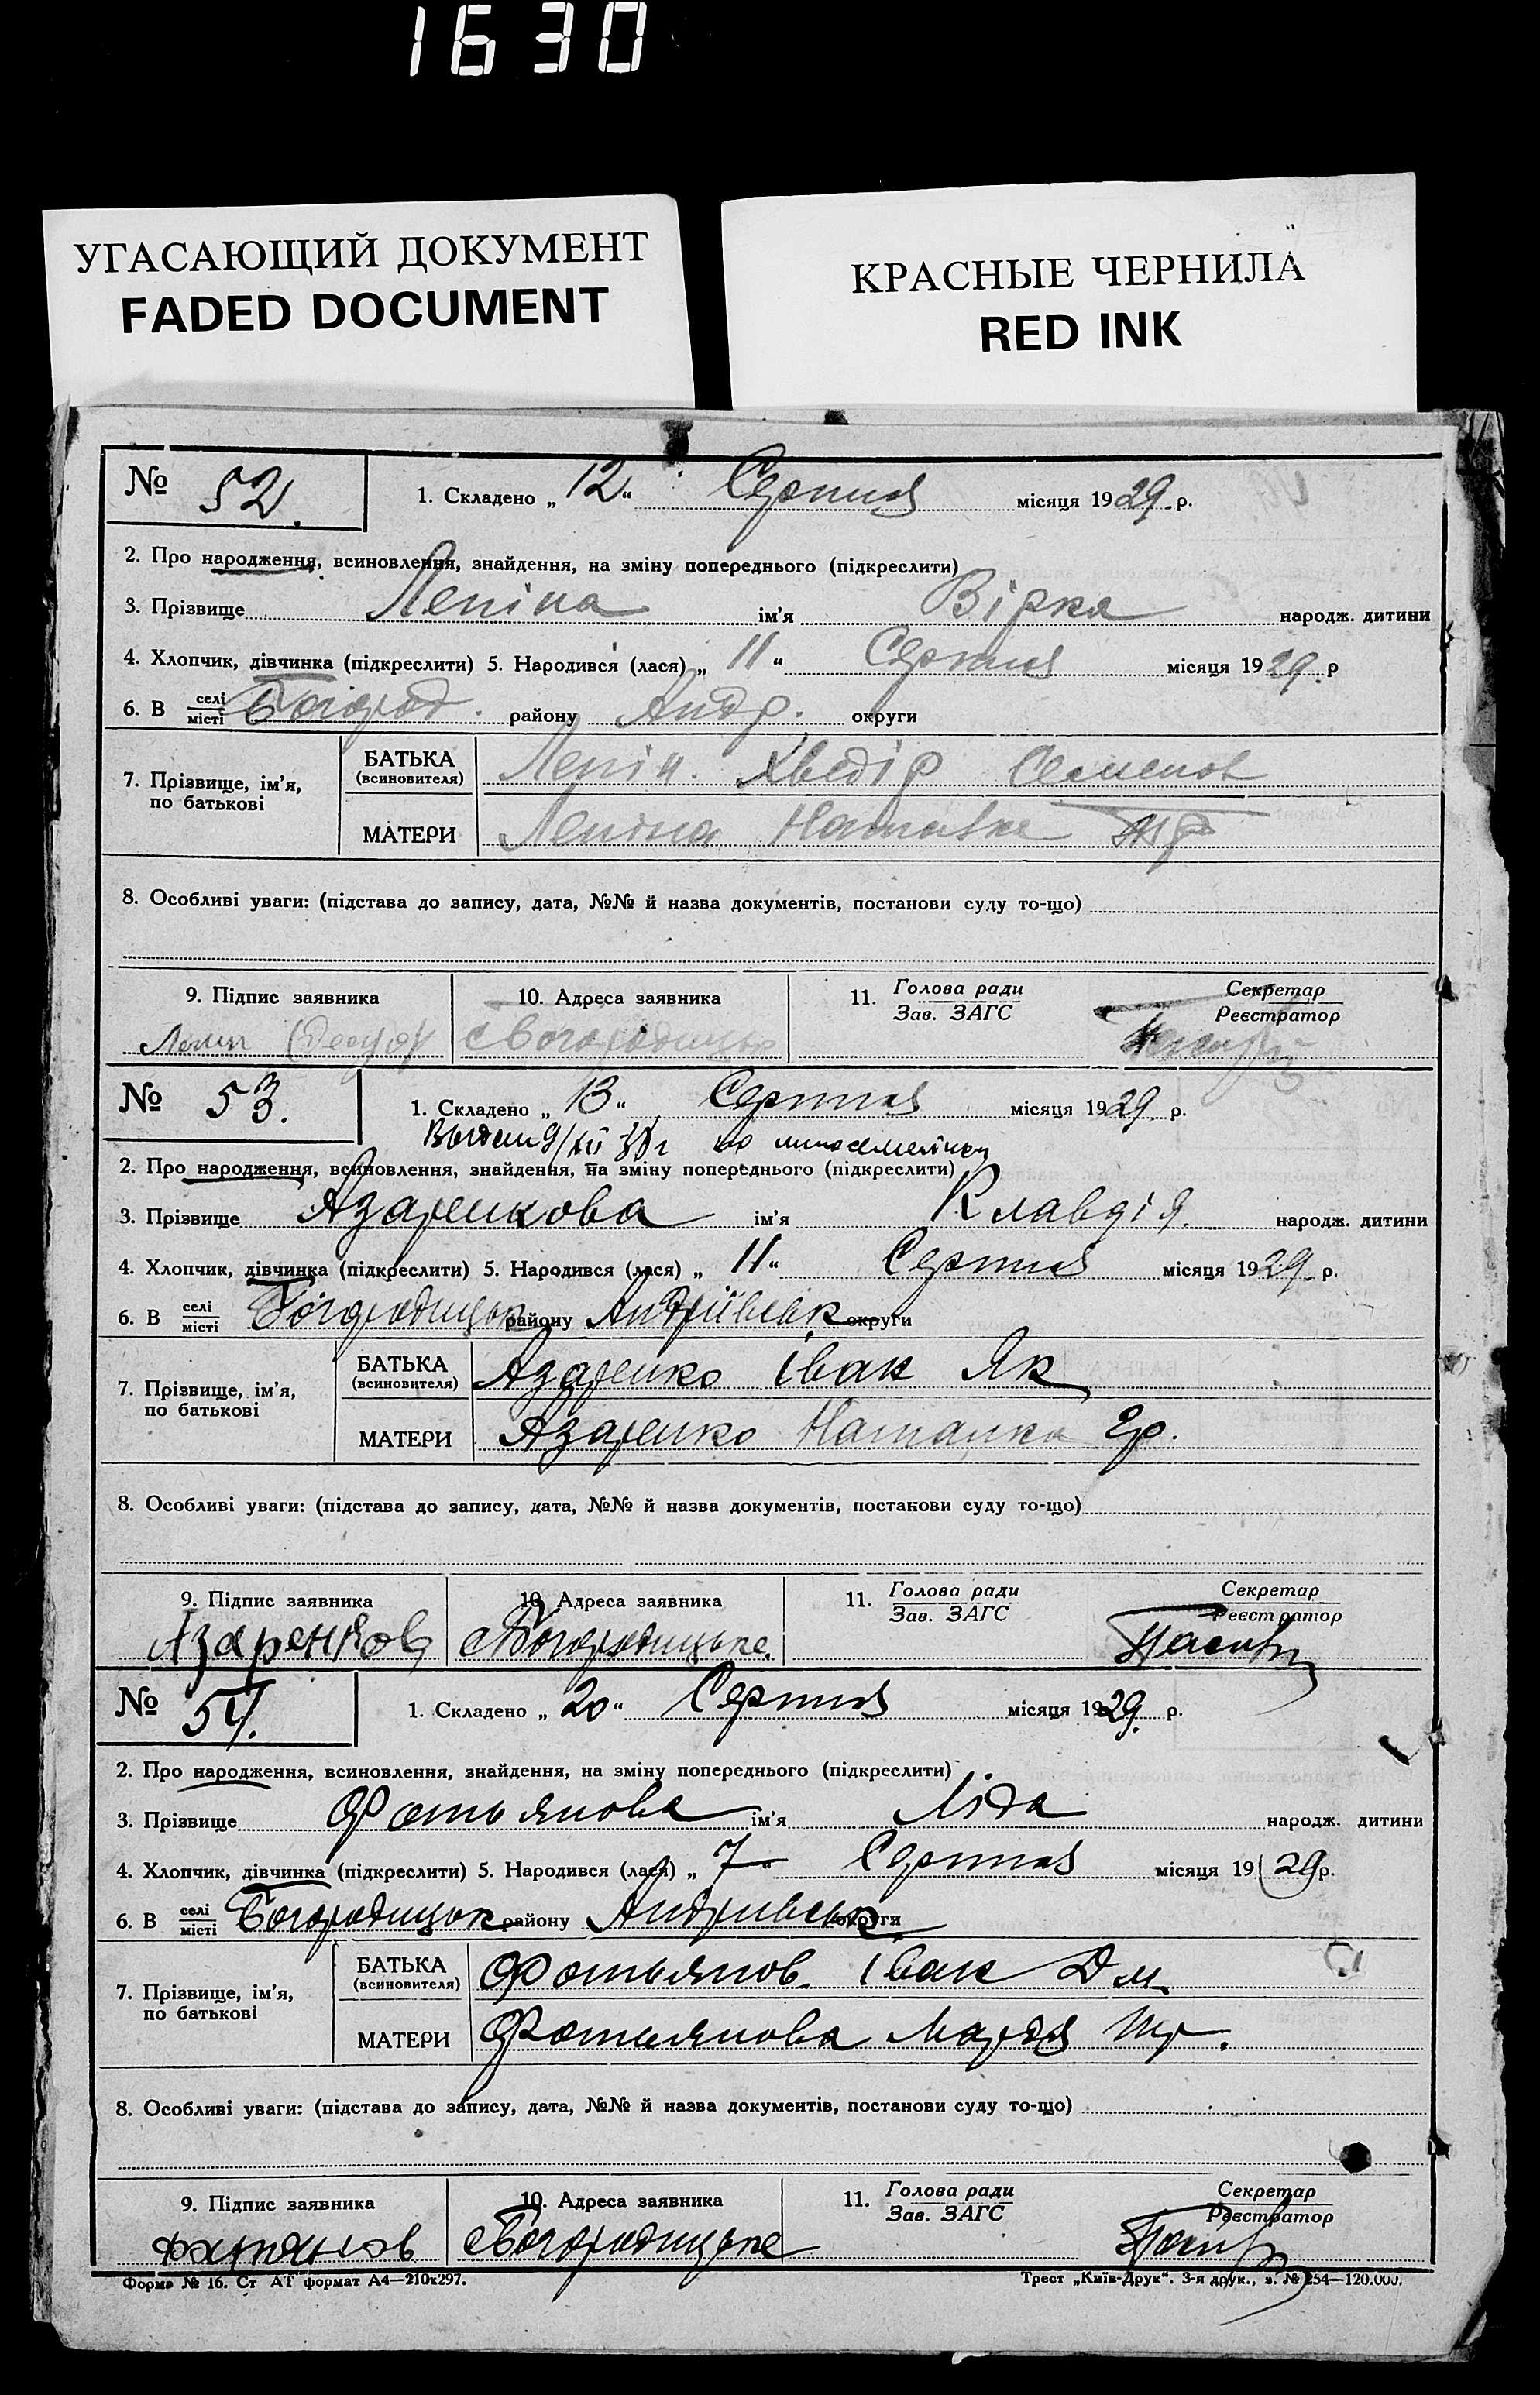 1630
УГАСАЮЩИЙ ДОКУМЕНТ
FADED DOCUMENT
КРАСНЫЕ ЧЕРНИЛА
RED INK
№ 52. 1. Складено „ 12 “ Серпня місяця 1929. р.
2. Про народження, всиновлення, знайдення, на зміну попереднього (підкреслити)
3. Прізвище Лепіна ім'я Вірка народж. дитини
4. Хлопчик, дівчинка (підкреслити) 5. Народився (лася) „ 11 “ Серпня місяця 1929. р
6. В селі місті Богород. району Андр. округи
7. Прізвище, ім'я, по батькові
БАТЬКА (всиновителя) Лепін. Хведір Семенов
МАТЕРИ Лепіна Наталка
8. Особливі уваги: (підстава до запису, дата, №№ й назва документів, постанови суду то-що)
9. Підпис заявника 10. Адреса заявника 11. Голова ради Зав. ЗАГС Секретар Реєстратор
Богородицьке
№ 53. 1. Складено „ 13 “ Серпня місяця 1929 р.
2. Про народження, всиновлення, знайдення, на зміну попереднього (підкреслити)
3. Прізвище Азаренкова ім'я Клавдія. народж. дитини
4. Хлопчик, дівчинка (підкреслити) 5. Народився (лася) „ 11 “ Серпня місяця 1929. р.
6. В селі місті Богородицьк району Андріївськ округи
7. Прізвище, ім'я, по батькові
БАТЬКА (всиновителя) Азаренко Іван Як
МАТЕРИ Азаренко Наталка Гр.
8. Особливі уваги: (підстава до запису, дата, №№ й назва документів, постанови суду то-що)
9. Підпис заявника 10. Адреса заявника 11. Голова ради Зав. ЗАГС Секретар Реєстратор
Азаренков Богородицьке.
№ 54. 1. Складено „ 20 “ Серпня місяця 1929. р.
2. Про народження, всиновлення, знайдення, на зміну попереднього (підкреслити)
3. Прізвище Фотьянова ім'я Ліда народж. дитини
4. Хлопчик, дівчинка (підкреслити) 5. Народився (лася) „ 7 “ Серпня місяця 1929 р.
6. В селі місті Богородицьк району Андривськ округи
7. Прізвище, ім'я, по батькові
БАТЬКА (всиновителя) Фотьянов Іван Дм
МАТЕРИ Фотьянова Марія
8. Особливі уваги: (підстава до запису, дата, №№ й назва документів, постанови суду то-що)
9. Підпис заявника 10. Адреса заявника 11. Голова ради Зав. ЗАГС Секретар Реєстратор
Богородицьке
Форма № 16. Ст АТ формат А4—210х297. Трест „Київ-Друк“. 3-я друк., з. № 254—120.000.